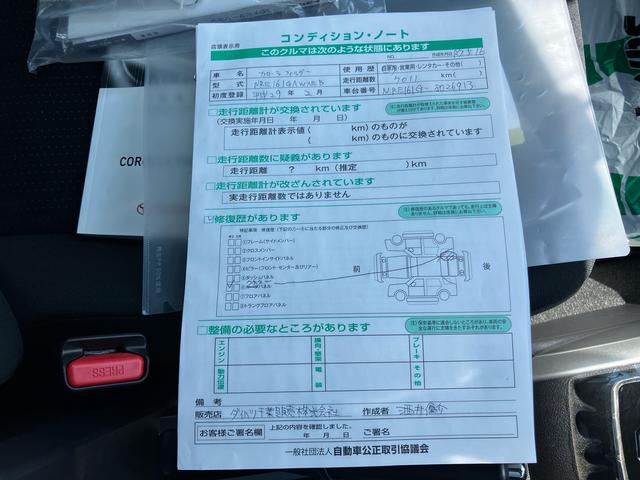 コンディション・ノート
店頭表示用
このクルマは次のような状態にあります
NO.
車名
カローラフィールダー
使用歴
自家用・営業用・レンタカー・その他( )
型式
NRE161GAWXEB
走行距離数
7011 km( )
初度登録
平成29年 2月
車台番号
NRE161G- 3026913
走行距離計が交換されています
(交換実施年月日 年 月 日)
走行距離計表示値( km)のものが
( km)のものに交換されています
走行距離数に疑義があります
走行距離 ? km(推定 )km
走行距離計が改ざんされています
実走行距離数ではありません
修復歴があります
検記事項 修復歴(下記の①~⑧に当たる部分の修正及び交換歴)
①フレーム(サイドメンバー)
②クロスメンバー
③フロントインサイドパネル
④ピラー(フロント・センター及びリア)
⑤ダッシュパネル
⑦フロアパネル
⑧トランクフロアパネル
前
後
整備の必要なところがあります
エンジン
操向・懸架
ブレーキ
動力伝達
電装
その他
備考
販売店
ダイハツ千葉販売株式会社
作成者
酒井
お客様ご署名欄
上記の内容を確認しました。
年 月 日
ご署名
一般社団法人 自動車公正取引協議会
PRESS
COR